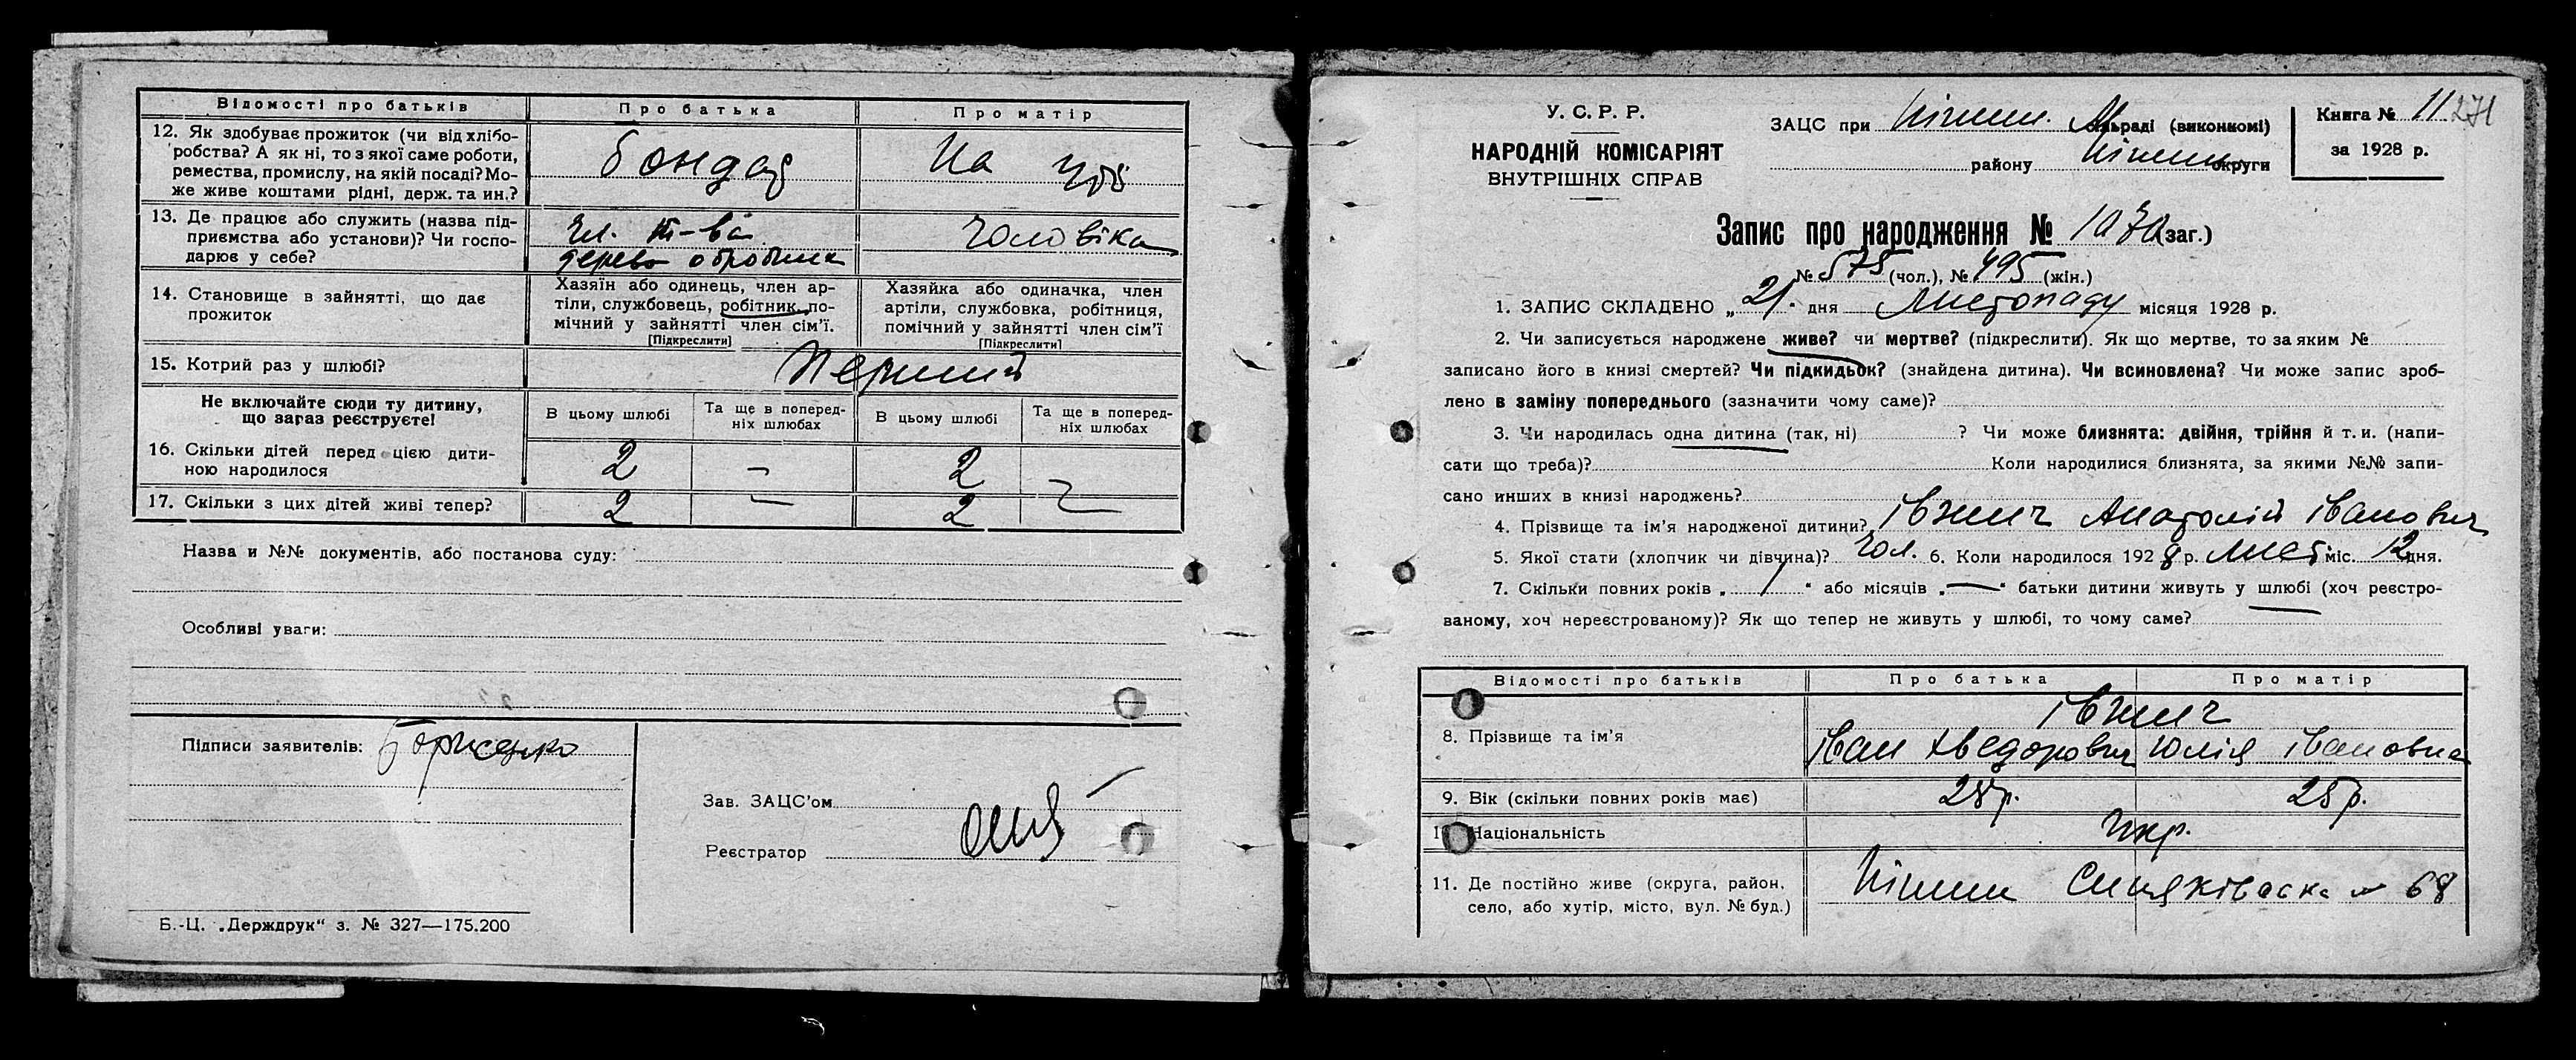 Відомості про батьків
Про батька
Про матір
12. Як здобуває прожиток (чи від хлібо-
робства? А як ні, то з якої саме роботи,
ремества, промислу, на якій посаді? Мо-
же живе коштами рідні, держ. та ин.?
бондар
На утр
13. Де працює або служить (назва під-
приємства або установи)? Чи госпо-
дарює у себе?
чл. т-ва
дерево
чоловіка
14. Становище в зайнятті, що дає
прожиток
Хазяїн або одинець, член ар-
тіли, службовець, робітник, по-
мічний у зайнятті член сім'ї.
[Підкреслити]
Хазяйка або одиначка, член
артіли, службовка, робітниця,
помічний у зайнятті член сім'ї
[Підкреслити]
15. Котрий раз у шлюбі?
Перший
Не включайте сюди ту дитину,
що зараз реєструєте!
В цьому шлюбі
Та ще в поперед-
ніх шлюбах
В цьому шлюбі
Та ще в поперед-
ніх шлюбах
16. Скільки дітей перед цією дити-
ною народилося
2 — 2
17. Скільки з цих дітей живі тепер?
2 — 2 —
Назва и №№ документів, або постанова суду:
Особливі уваги:
Підписи заявителів: Борисенко
Зав. ЗАЦС'ом
Реєстратор
Б.-Ц. „Держдрук“ з. № 327—175.200
У. С. Р. Р.
НАРОДНІЙ КОМІСАРІЯТ
ВНУТРІШНІХ СПРАВ
ЗАЦС при Ніжин. М раді (виконкомі)
району Ніжин округи
Книга № 11 271
за 1928 р.
Запис про народження № 1070 (заг.)
№ 575 (чол.), № 495 (жін.)
1. ЗАПИС СКЛАДЕНО „21“ дня Листопаду місяця 1928 р.
2. Чи записується народжене живе? чи мертве? (підкреслити). Як що мертве, то за яким №
записано його в книзі смертей? Чи підкидьок? (знайдена дитина). Чи всиновлена? Чи може запис зроб-
лено в заміну попереднього (зазначити чому саме)?
3. Чи народилась одна дитина (так, ні) ? Чи може близнята: двійня, трійня й т. и. (напи-
сати що треба)? Коли народилися близнята, за якими №№ запи-
сано инших в книзі народжень?
4. Прізвище та ім'я народженої дитини? Івжич Анатолій Іванович
5. Якої стати (хлопчик чи дівчина)? Чол. 6. Коли народилося 1928 р. Лист. міс. 12 дня.
7. Скільки повних років „ / “ або місяців „ — “ батьки дитини живуть у шлюбі (хоч реєстро-
ваному, хоч нереєстрованому)? Як що тепер не живуть у шлюбі, то чому саме?
Відомості про батьків
Про батька
Про матір
Івжич
8. Прізвище та ім'я
Іван Хведорович
Юлія Івановна
9. Вік (скільки повних років має)
28 р.
25 р.
10. Національність
Укр.
11. Де постійно живе (округа, район,
село, або хутір, місто, вул. № буд.)
Ніжин Синяківська № 68